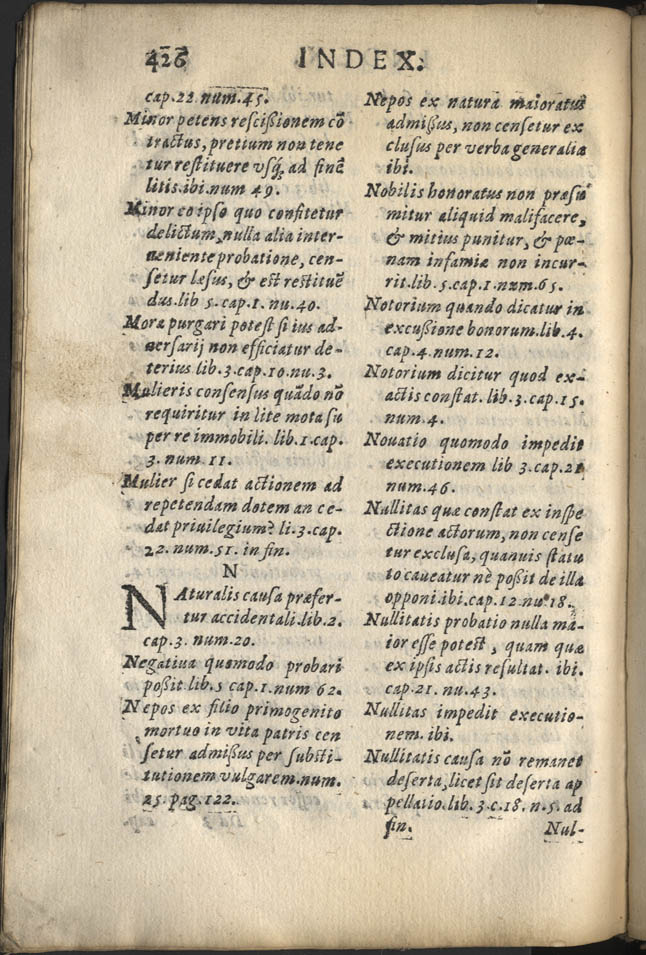 426 INDEX.
cap.22 num.45.
Minor petens resciſſionem cō
tractus, pretium non tene
tur reſtituere vſq; ad finē
litis.ibi.num 49.
Minor eo ipſo quo confitetur
delictum, nulla alia inter-
ueniente probatione, cen-
ſetur læſus, & eſt reſtituē
dus.lib 5.cap.1.nu.40.
Mora purgari poteſt ſi ius ad-
uerſarij non efficiatur de-
terius lib.3.cap.10.nu.3.
Mulieris conſenſus quādo nō
requiritur in lite mota ſu
per re immobili. lib.1.cap.
3. num 11.
Mulier ſi cedat actionem ad
repetendam dotem an ce-
dat priuilegium? li.3.cap.
22.num.51. in fin.
N
NAturalis cauſa præfer-
tur accidentali.lib.2.
cap.3. num.20.
Negatiua quomodo probari
poſſit.lib.5 cap.1.num 62.
Nepos ex filio primogenito
mortuo in vita patris cen
ſetur admiſſus per ſubſti-
tutionem vulgarem.num.
25.pag.122.
Nepos ex natura maioratus
admiſſus, non cenſetur ex
cluſus per verba generalia
ibi.
Nobilis honoratus non præſu
mitur aliquid malifacere,
& mitius punitur, & pœ-
nam infamiæ non incur-
rit.lib.5.cap.1.num.65.
Notorium quando dicatur in
excuſſione bonorum.lib.4.
cap.4.num.12.
Notorium dicitur quod ex-
actis conſtat. lib.3.cap.15.
num.4.
Nouatio quomodo impedit
executionem lib 3.cap.21
num.46.
Nullitas quæ conſtat ex inſpe
ctione actorum, non cenſe
tur excluſa, quanuis ſtatu
to caueatur nè poſſit de illa
opponi.ibi.cap.12 nu.18.
Nullitatis probatio nulla ma-
ior eſſe poteſt, quam quæ
ex ipſis actis reſultat. ibi.
cap.21. nu.43.
Nullitas impedit executio-
nem.ibi.
Nullitatis cauſa nō remanet
deſerta, licet ſit deſerta ap
pellatio.lib.3.c.18.n.5.ad
fin. Nul-